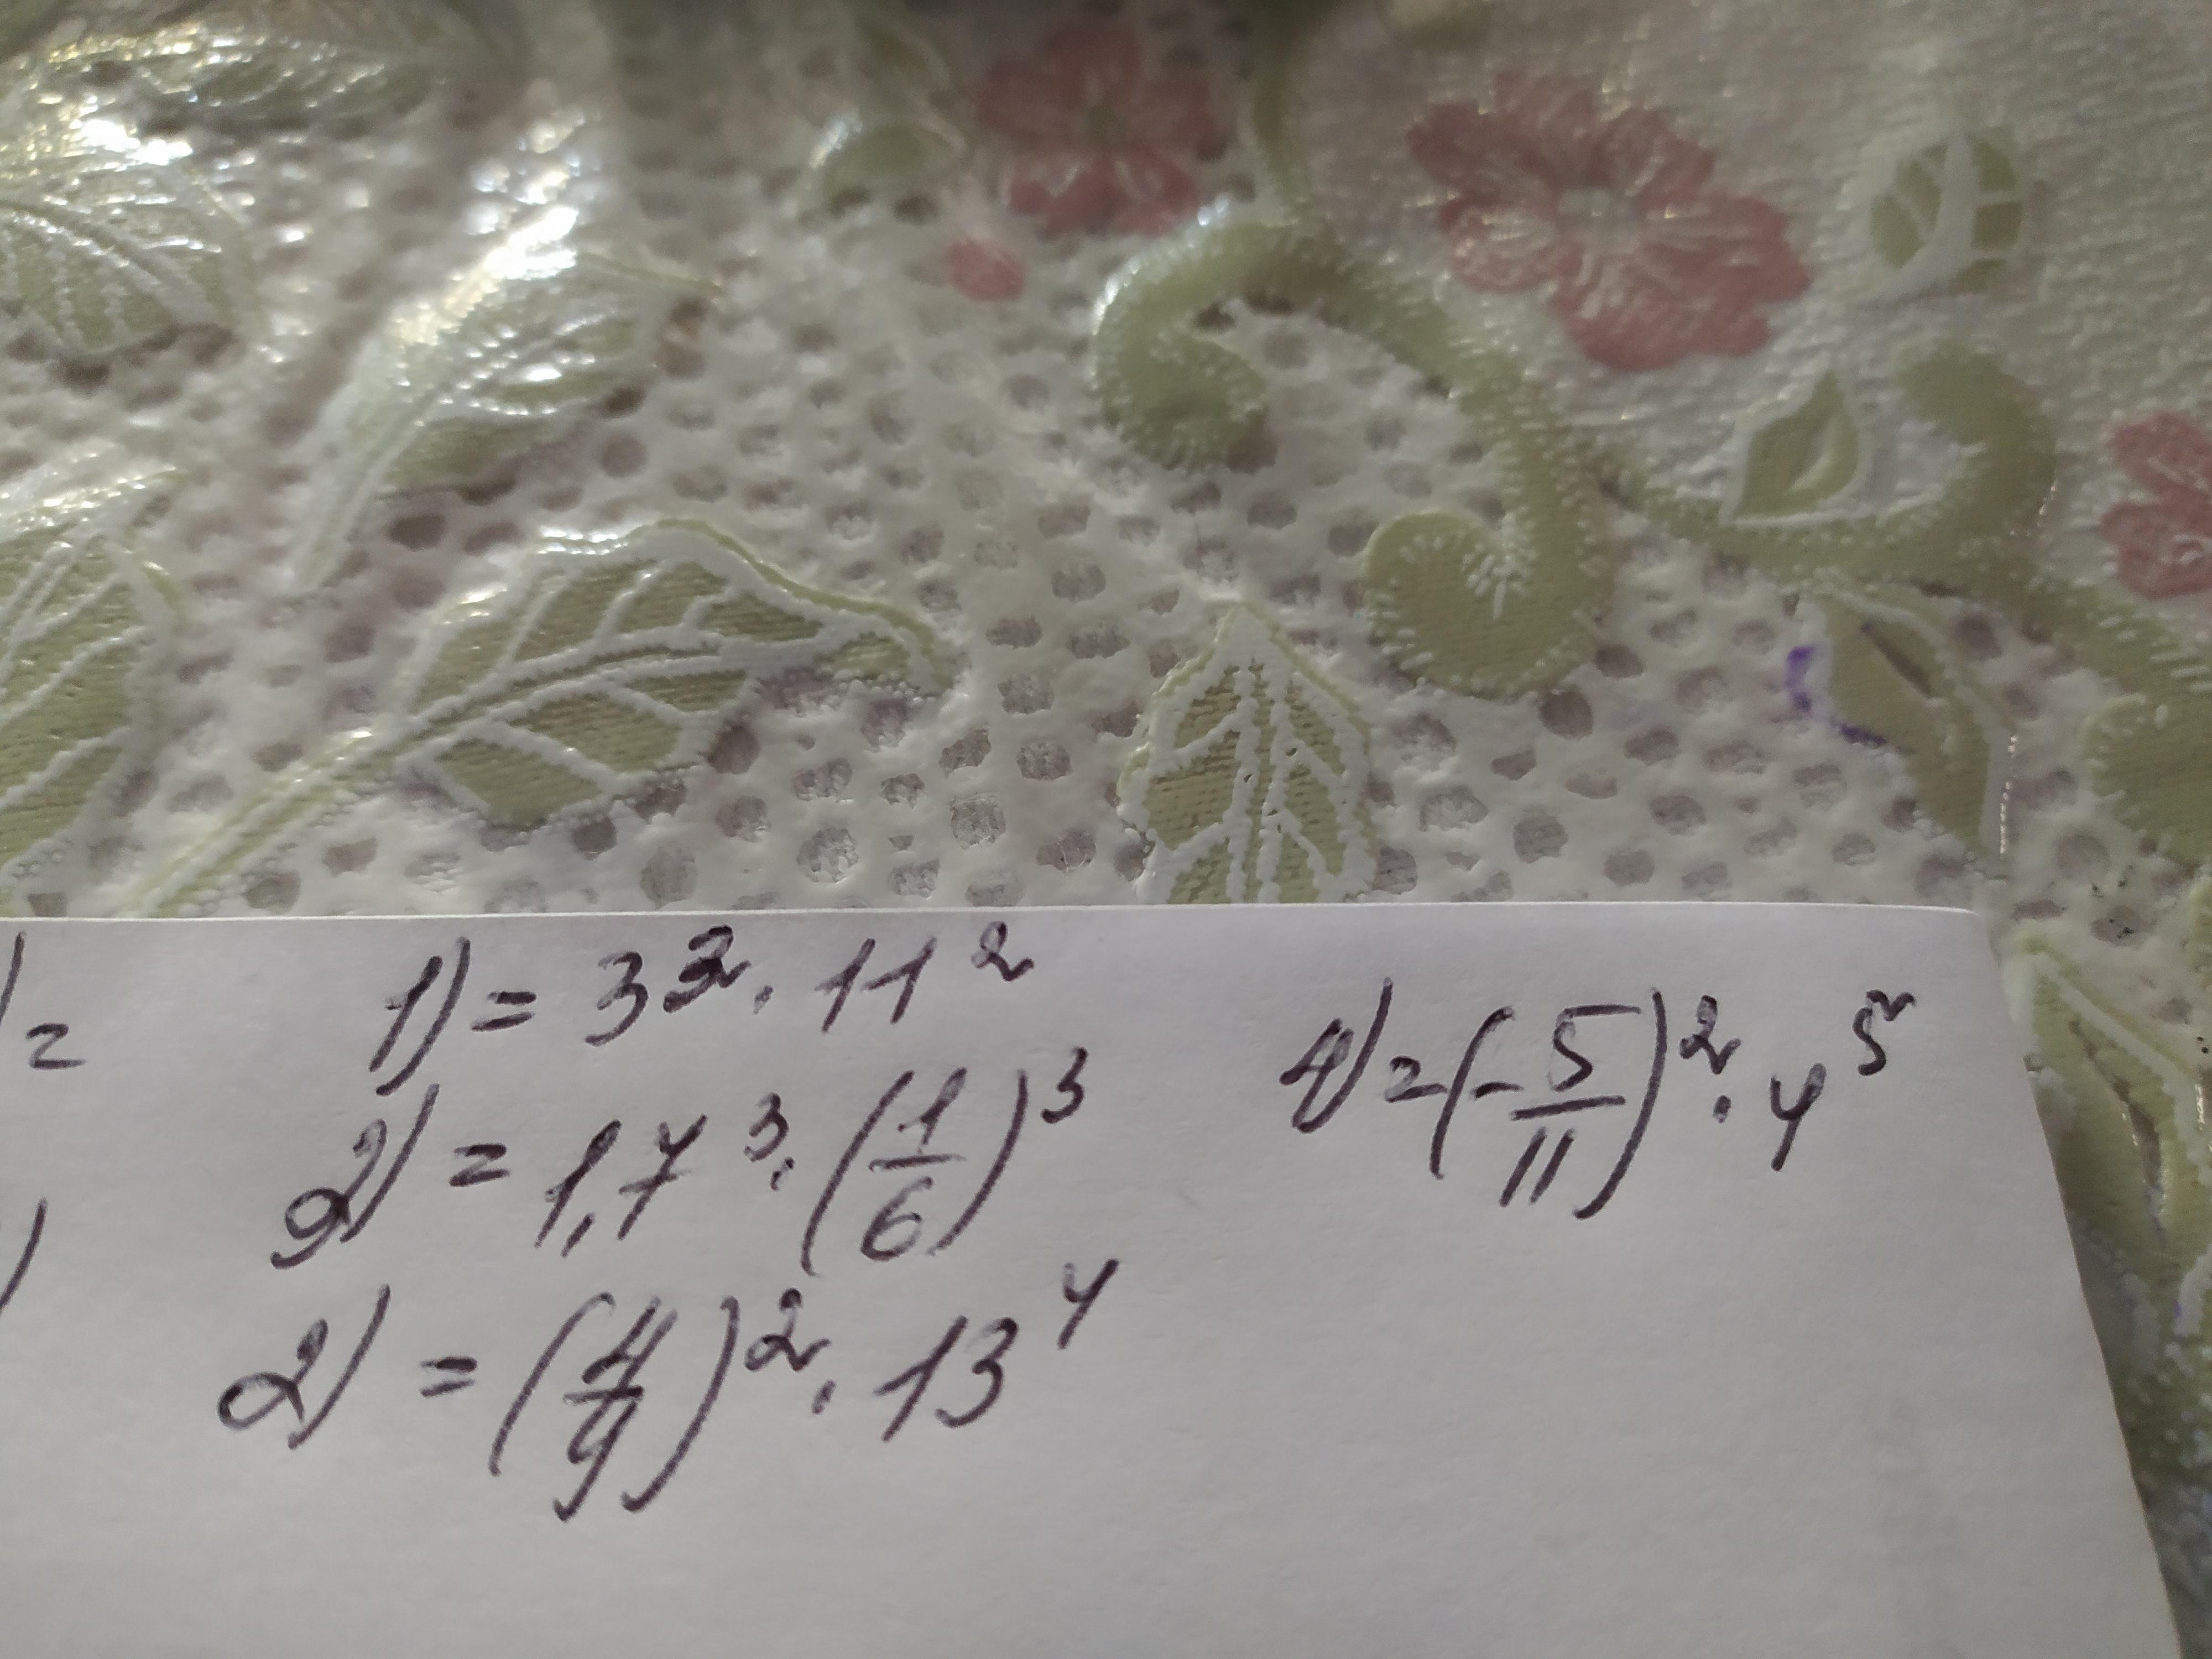 )=
1) = 3² · 11²
2) = 1,7³ · (1/6)³
2) = (4/9)² · 13⁴
4) = (-5/11)² · 4⁵
)